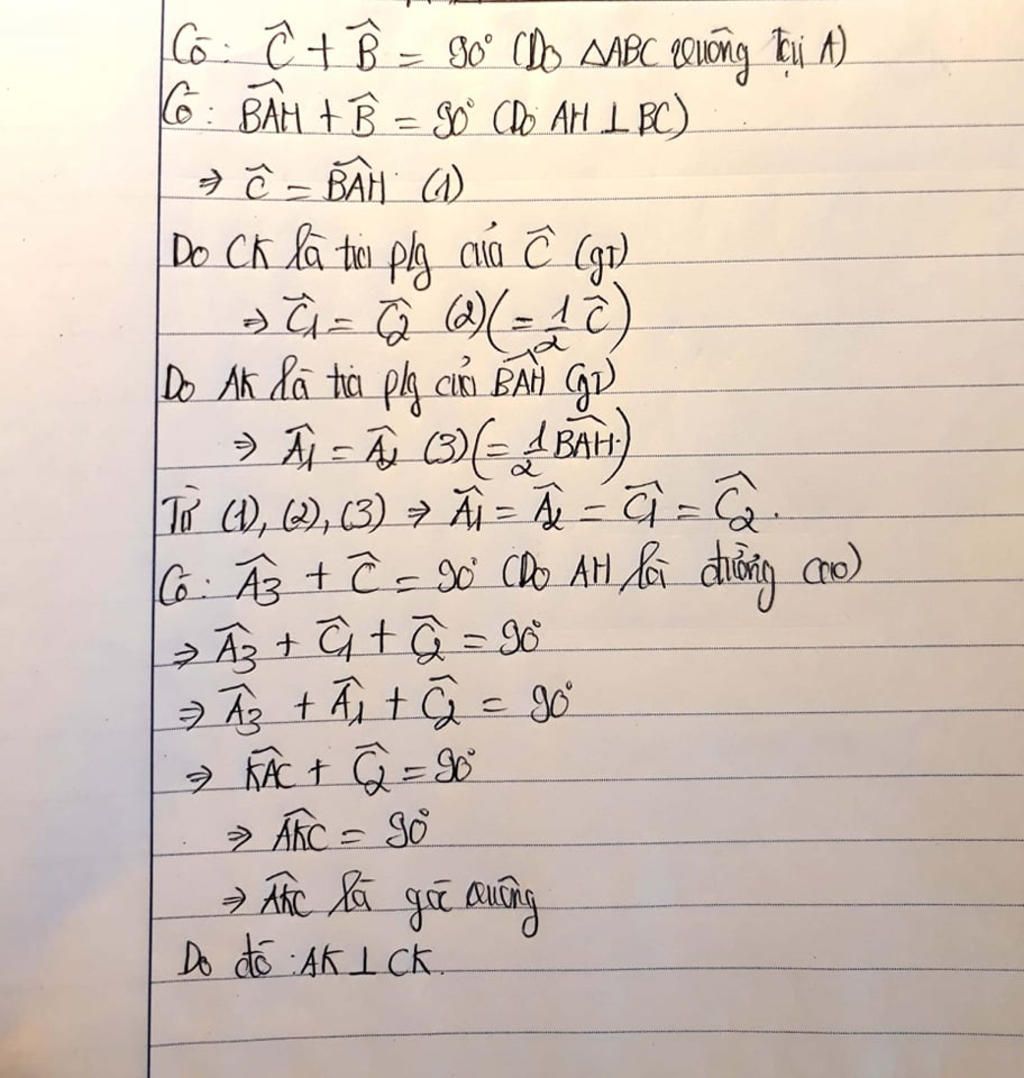 Có: Ĉ + B̂ = 90° (Do △ABC vuông tại A)
Có: BAĤ + B̂ = 90° (Do AH ⊥ BC)
⇒ Ĉ = BAĤ (1)
Do CK là tia p/g của Ĉ (gt)
⇒ Ĉ1 = Ĉ2 (2) (= 1/2 Ĉ)
Do AK là tia p/g của BAĤ (gt)
⇒ Â1 = Â2 (3) (= 1/2 BAĤ)
Từ (1), (2), (3) ⇒ Â1 = Â2 = Ĉ1 = Ĉ2.
Có: Â3 + Ĉ = 90° (Do AH là đường cao)
⇒ Â3 + Ĉ1 + Ĉ2 = 90°
⇒ Â3 + Â1 + Ĉ2 = 90°
⇒ KAĈ + Ĉ2 = 90°
⇒ AKĈ = 90°
⇒ AKĈ là góc vuông
Do đó: AK ⊥ CK.